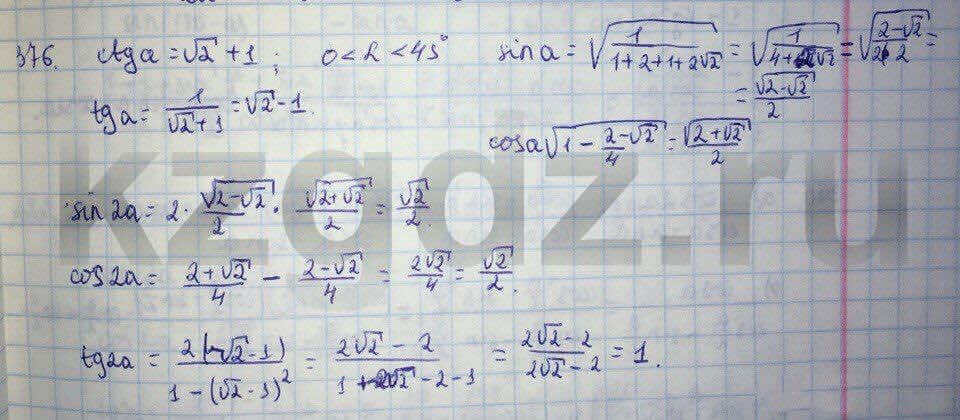 376. ctg a = √2 + 1 ; 0 < α < 45°
tg a = 1/(√2 + 1) = √2 - 1.
sin a = √(1/(1 + 2 + 1 + 2√2)) = √(1/(4 + 2√2)) = √((2 - √2)/(2·2)) =
= √(2 - √2)/2
cos a √(1 - (2 - √2)/4) = √(2 + √2)/2
sin 2a = 2 · √(2 - √2)/2 · √(2 + √2)/2 = √2/2.
cos 2a = (2 + √2)/4 - (2 - √2)/4 = 2√2/4 = √2/2.
tg 2a = 2(√2 - 1)/(1 - (√2 - 1)²) = (2√2 - 2)/(1 + 2√2 - 2 - 1) = (2√2 - 2)/(2√2 - 2) = 1.
kzgdz.ru